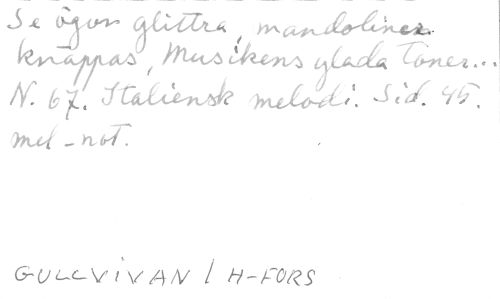 Se ögon glittra, mandoliner
knäppas, Musikens glada toner...
N. 67. Italiensk melodi. Sid. 45.
mel-not.
GULLVIVAN / H-FORS